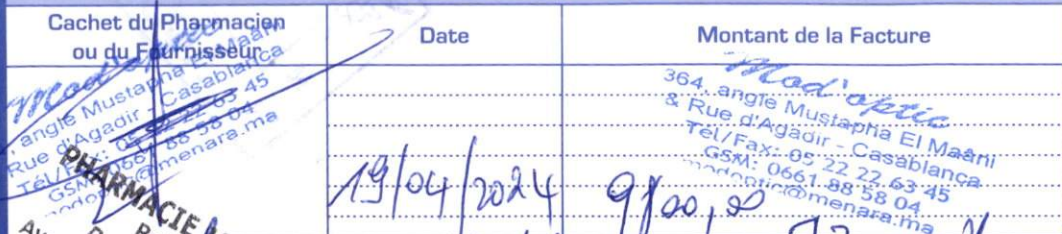 Cachet du Pharmacien
ou du Fournisseur
Date
Montant de la Facture
Mod'optic
angle Mustapha El Maâni
Rue d'Agadir - Casablanca
Tél/Fax: 05 22 22 63 45
GSM: 0661 88 58 04
@menara.ma
PHARMACIE
19/04/2024
Mod'optic
364, angle Mustapha El Maâni
& Rue d'Agadir - Casablanca
Tél/Fax: 05 22 22 63 45
GSM: 0661 88 58 04
modoptic@menara.ma